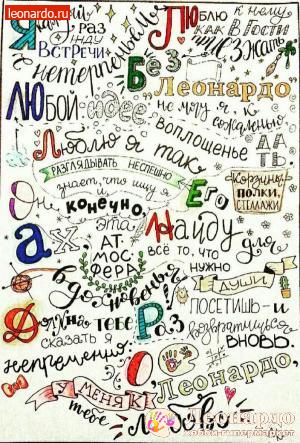 leonardo.ru
Я каждый раз жду встречи
с нетерпеньем,
Люблю к нему как в гости приезжать
Без „Леонардо"
Любой идее
не могу я, к сожаленью,
воплощенье дать
Люблю я так
разглядывать неспешно
Его корзины, полки, стеллажи
Он знает, что ищу я
и, конечно,
Найду
всё то, что нужно для души
Ах, эта
атмосфера
вдохновенья!
Раз посетишь - и
возвратишься вновь.
Должна тебе сказать я
непременно,
О, „Леонардо",
у меня к тебе
любовь
Леонардо
хобби-гипермаркет